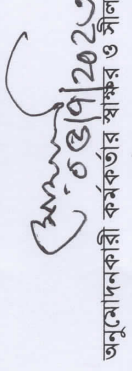 ০৪/৭/২০২৩
অনুমোদনকারী কর্মকর্তার স্বাক্ষর ও সীল